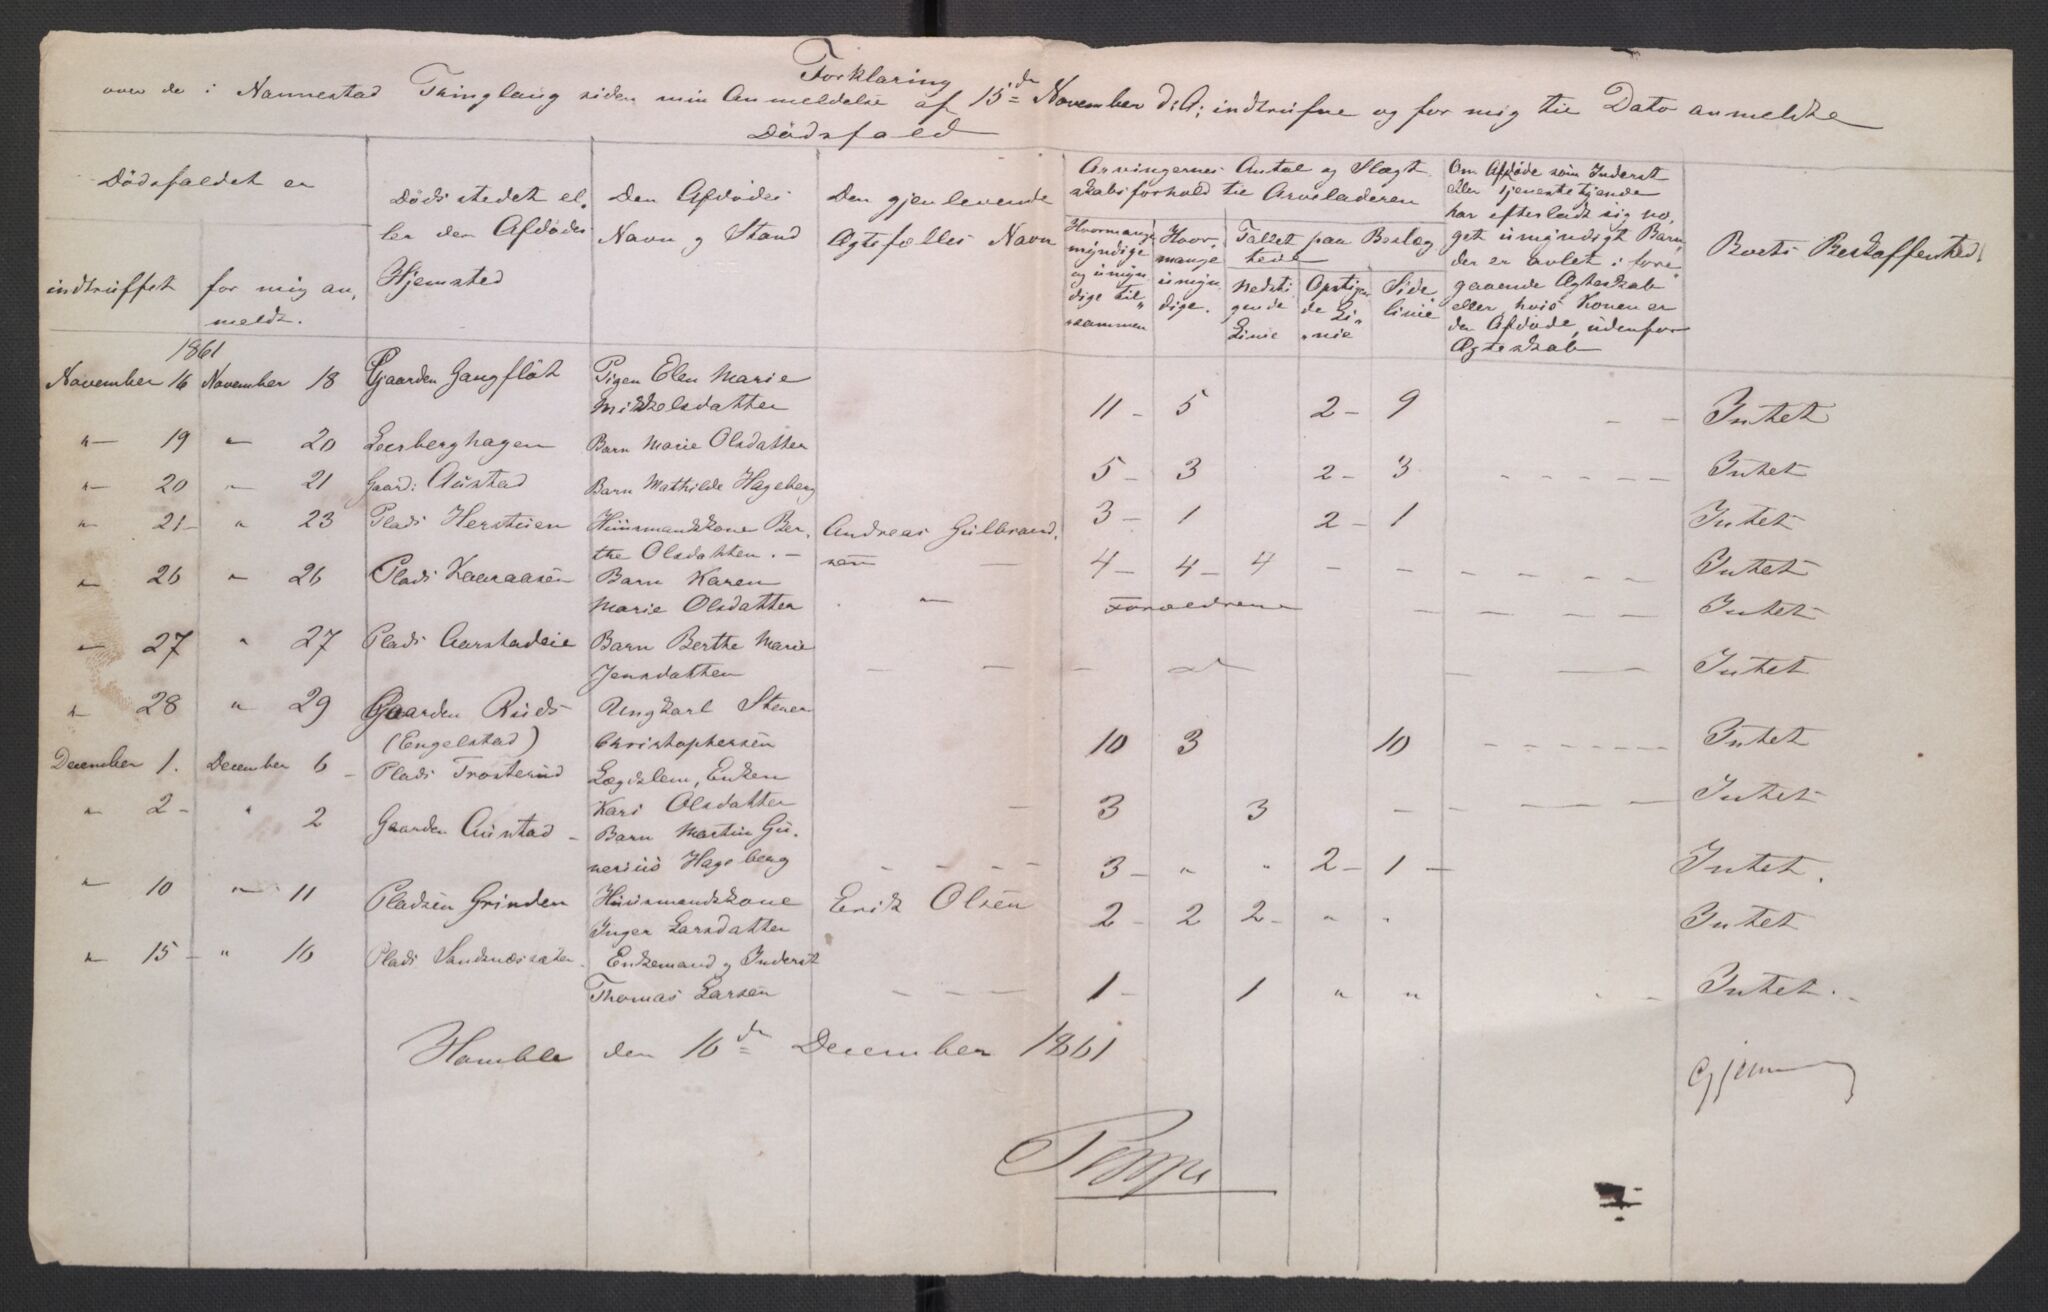 Forklaring
over de i Nannestad Thinglaug siden min Anmeldelse af 15de November d: A: indtrufne og for mig til Dato anmeldte
Dødsfald
Dødsfaldet er
indtruffet
for mig an,
meldt.
Dødsstedet el,
ler den Afdødes
Hjemsted
Den Afdødes
Navn og Stand
Den gjenlevende
Ægtefælles Navn
Arvingernes Antal og Slægt
skabsforhold til Arveladeren
Hvormange
myndige
og umyn
dige til,
sammen
Hvor,
mange
umyn
dige.
Tallet paa Beslæg
tede
Nedsti
gende
Linie
Opstigen
de Li,
nie
Side
linie
Om Afdøde som Inderst
eller tjenestetjende
har efterladt sig no,
get umyndigt Barn,
der er avlet i fore
gaaende Ægteskab
eller, hvis Konen er
den Afdøde, udenfor
Ægteskab
Boets Beskaffenhed.
1861
November 16 November 18 Gaarden Gangfløt Pigen Elen Marie
Mikkelsdatter 11 - 5 2 - 9 - - Intet
" 19 " 20 Leerberghagen Barn Marie Olsdatter 5 - 3 2 - 3 - - - - - - Intet
" 20 " 21 Gaard: Austad Barn Mathilde Hageberg 3 - 1 2 - 1 Intet
" 21 - " 23 Plads Hersteien Huusmandskone Ber, Andreas Gulbrand,
the Olsdatter. - sen - 4 - 4 - 4 - - - - - - - Intet
" 26 " 26 Plads Kaaraasen Barn Karen
Marie Olsdatter " Forældrene - - - - - Intet
" 27 " 27 Plads Aarstadeie Barn Berthe Marie
Jensdatter - - - - - - Intet
" 28 " 29 Gaarden Ruds Ungkarl Stener
(Engelstad) Christophersen 10 3 10 - - - - - - Intet
December 1. December 6 - Plads Trosterud Lægdslem, Enken
Kari Olsdatter - 3 3 - - - - - - Intet
" 2 - " 2 Gaarden Austad - Barn Martin Gu,
nerius Hageberg - - - - 3 - " " 2 - 1 - Intet.
" 10 " 11 Pladsen Grinden Huusmandskone Erik Olsen
Inger Larsdatter 2 - 2 2 - " " Intet
" 15 - " 16 Plads Sandnessæter. Enkemand og Inderst
Thomas Larsen - - - - 1 - 1 " " - - Intet. -
Homble den 16de December 1861